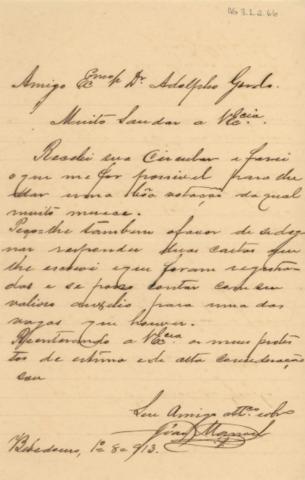 AG 3.1.2.66
Amigo Exmo Dr. Adolpho Gordo
Muito Saudar a V. Excia.
Recebi sua Circular e farei
o que me for possivel para lhe
dar uma bôa votação da qual
muito merece.
Peço-lhe tambem o favor de se dig
nar responder duas cartas que
lhe escrevi e que foram registra
das e se posso contar com seu
valioso auxilio para uma das
vagas que houver.
a V. Excia os meus protes
tos de estima e de alta consideração
sou
Seu Amigo Atto. e obro.
João Manoel
Bebedouro, 1º 8- 913.